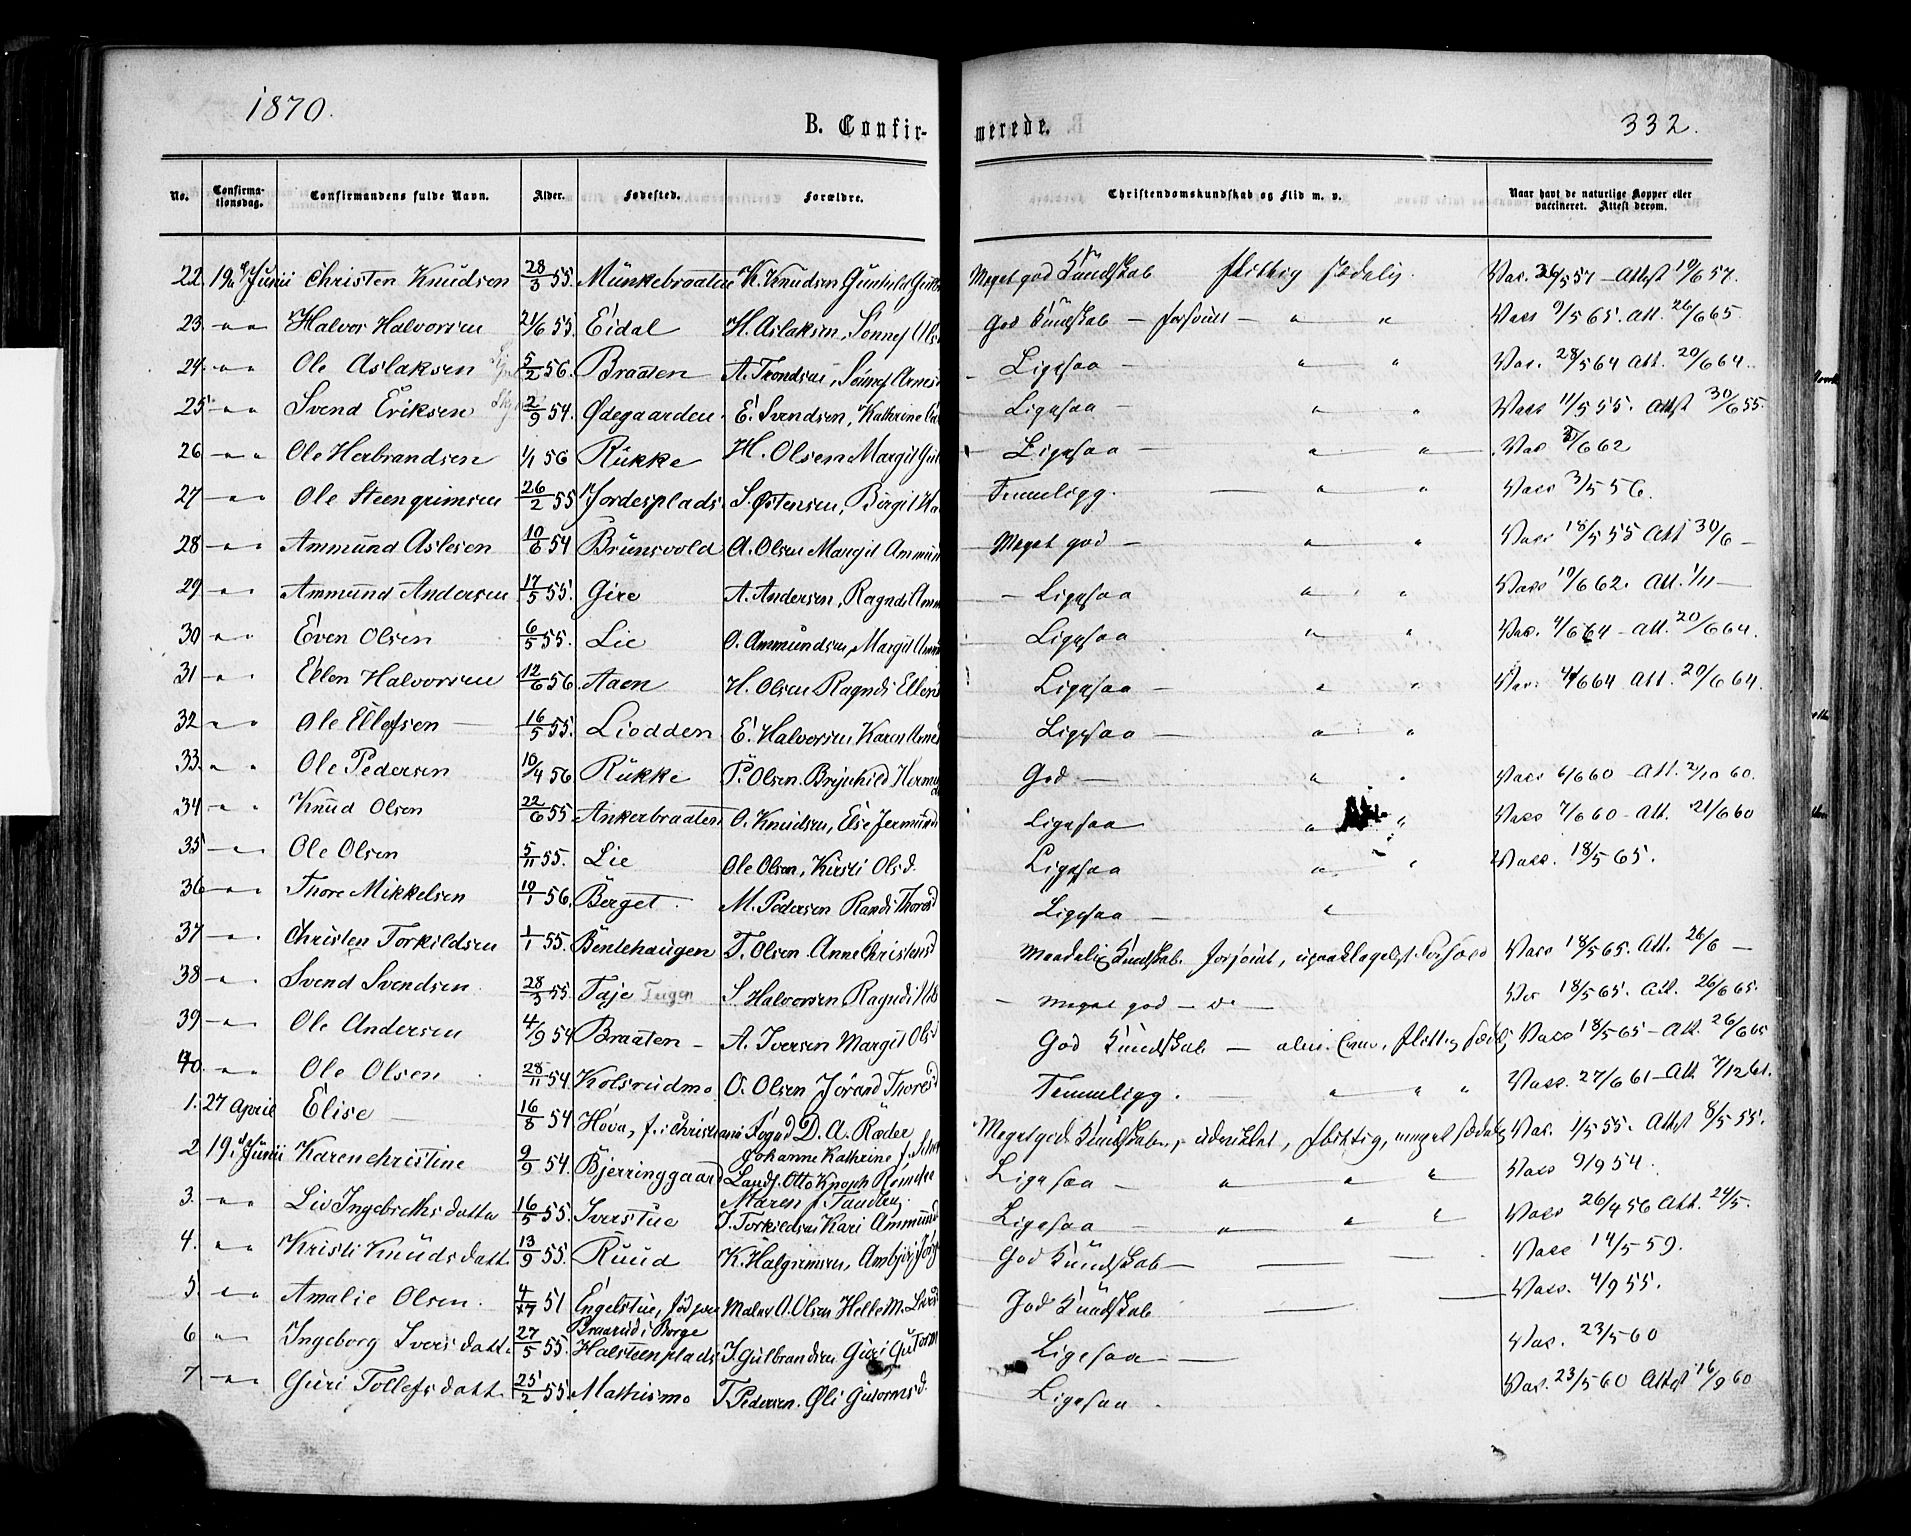 1870.
B. Confir-
merede.
332.
No. Confirma-tionsdag. Confirmandens fulde Navn. Alder. Fødested. Forældre. Christendomskundskab og Flid m. v. Naar havt de naturlige Kopper eller vaccineret. Attest derom.
22. 19de Junii Christen Knudsen 28/3 55. Munkebraaten K. Knudsen Gunhild Meget god Kundskab flittig sædelig. Vac. 26/5 57 – Attest 10/6 57.
23 " " Halvor Halvorsen 21/6 55. Eidal H. Aslaksen, Sønnef Ols God Kundskab – forsvint – " " Vacc 9/5 65. Att. 26/6 65.
24. " " Ole Aslaksen 5/2 56. Braaten A. Trondsen, Sønnef Arnes Ligesaa " " Vac. 28/5 64 Att. 20/6 64.
25 " " Svend Eriksen 2/9 54. Ødegaarden E. Svendsen, Kathrine Ligesaa – " " Vacc 11/5 55. Attest 30/6 55.
26 " " Ole Herbrandsen 1/1 56 Rukke H. Olsen Margit Ligesaa – " " Vac 6 62
27 " " Ole Steengrimsen 26/2 55 Jordesplads S. Østensen, Birgit Temmeligg. " " Vacc 3/5 56.
28 " " Ammund Aslesen 10/6 54 Brunsvold A. Olsen Margit Ammund Meget god – " " Vacc 18/5 55 Att 30/6 –
29 " " Ammund Andersen 17/5 55. Gire A. Andersen, Ragndi Amm – Ligesaa " " Vacc 10/6 62. Att. 1/11 –
30 " " Even Olsen 6/5 55. Lie O. Ammundsen, Margit Ligesaa " " Vac. 4/6 64 – Att. 20/6 64.
31 " " Ellen Halvorsen 12/6 56 Aaen H. Olsen Ragndi Ellens Ligesaa – " " Vac. 4/6 64 Att. 20/6 64.
32 " " Ole Ellefsen 16/5 55. Liodden E. Halvorsen Karen Arnes Ligesaa – " "
33. " " Ole Pedersen 10/4 56 Rukke P. Olsen. Brynhild God – " " Vacc 6/6 60 – Att. 2/10 60.
34 " " Knud Olsen 22/6 55 Ankerbraaten O. Knudsen, Else Jermunds Ligesaa " " Vacc 7/6 60 – Att. 21/6 60
35 " " Ole Olsen 5/11 55. Lie Ole Olsen, Kirsti Olsd. Ligesaa " " Vacc. 18/5 65.
36 " " Thore Mikkelsen 10/1 56. Berget. M. Pedersen Randi Thoresd Ligesaa – "
37 " " Christen Torkildsen 1/1 55. Bentehaugen T. Olsen Anne Christensd Maadelig Kundskab. forsømt, upaaklageligt Forhold Vacc 18/5 65. Att. 26/6 –
38 " " Svend Svendsen. 28/3 55 Taje S Halvorsen Ragndi – Meget god – Vac 18/5 65. Att. 26/6 65.
39 " " Ole Andersen 4/9 54 Braaten – A. Iversen Margit Ols God Kundskab – flittig sædelig Vacc 18/5 65 – Att. 26/6 65
40. " " Ole Olsen 28/11 54 Kolsrudmo O. Olsen Jørand Thoresd Temmeligg. " " " Vacc. 27/6 61 – Att 7/12 61.
1. 27 April Elise 16/8 54 Hova, f. i Christiania Fogd D. A. Ræder Johanne Kathrine f. Meget god Kundskab, udviklet, flittig, meget sædelig Vac. 1/5 55. Attest 8/5 55.
2 19. de Junii Karen christine 9/9 54. Bjerringgaard Otto Knoph Rømcke Maren f. Ligesaa – " " " Vacc 9/9 54.
3. " " Liv Ingebrethsdatte 16/5 55. Iverstue T. Torkildsen Kari Ammund Ligesaa – " " " Vacc 26/4 56 Att. 24/5.
4. " " Kristi Knudsdatt 13/9 55. Ruud K. Halgrimsen, Ambjør God Kundskab – Vacc 14/5 59.
5. " " Amalie Olsen. 51 Engelstue, fød paa Braarud i Borge Maler A. Olsen Helle M. God Kundskab Vacc. 4/9 55.
6 " Ingeborg Iversdatt. 27/5 55. Halsteenplads I. Gulbrandsen Guri Gutorm Ligesaa – Vac. 23/5 60
7 " " Guri Tollefsdatt 25/2 55. Mathismo T. Pedersen. Øli Gutormsd. Ligesaa. Vac. 23/5 60 Attest 16/9 60